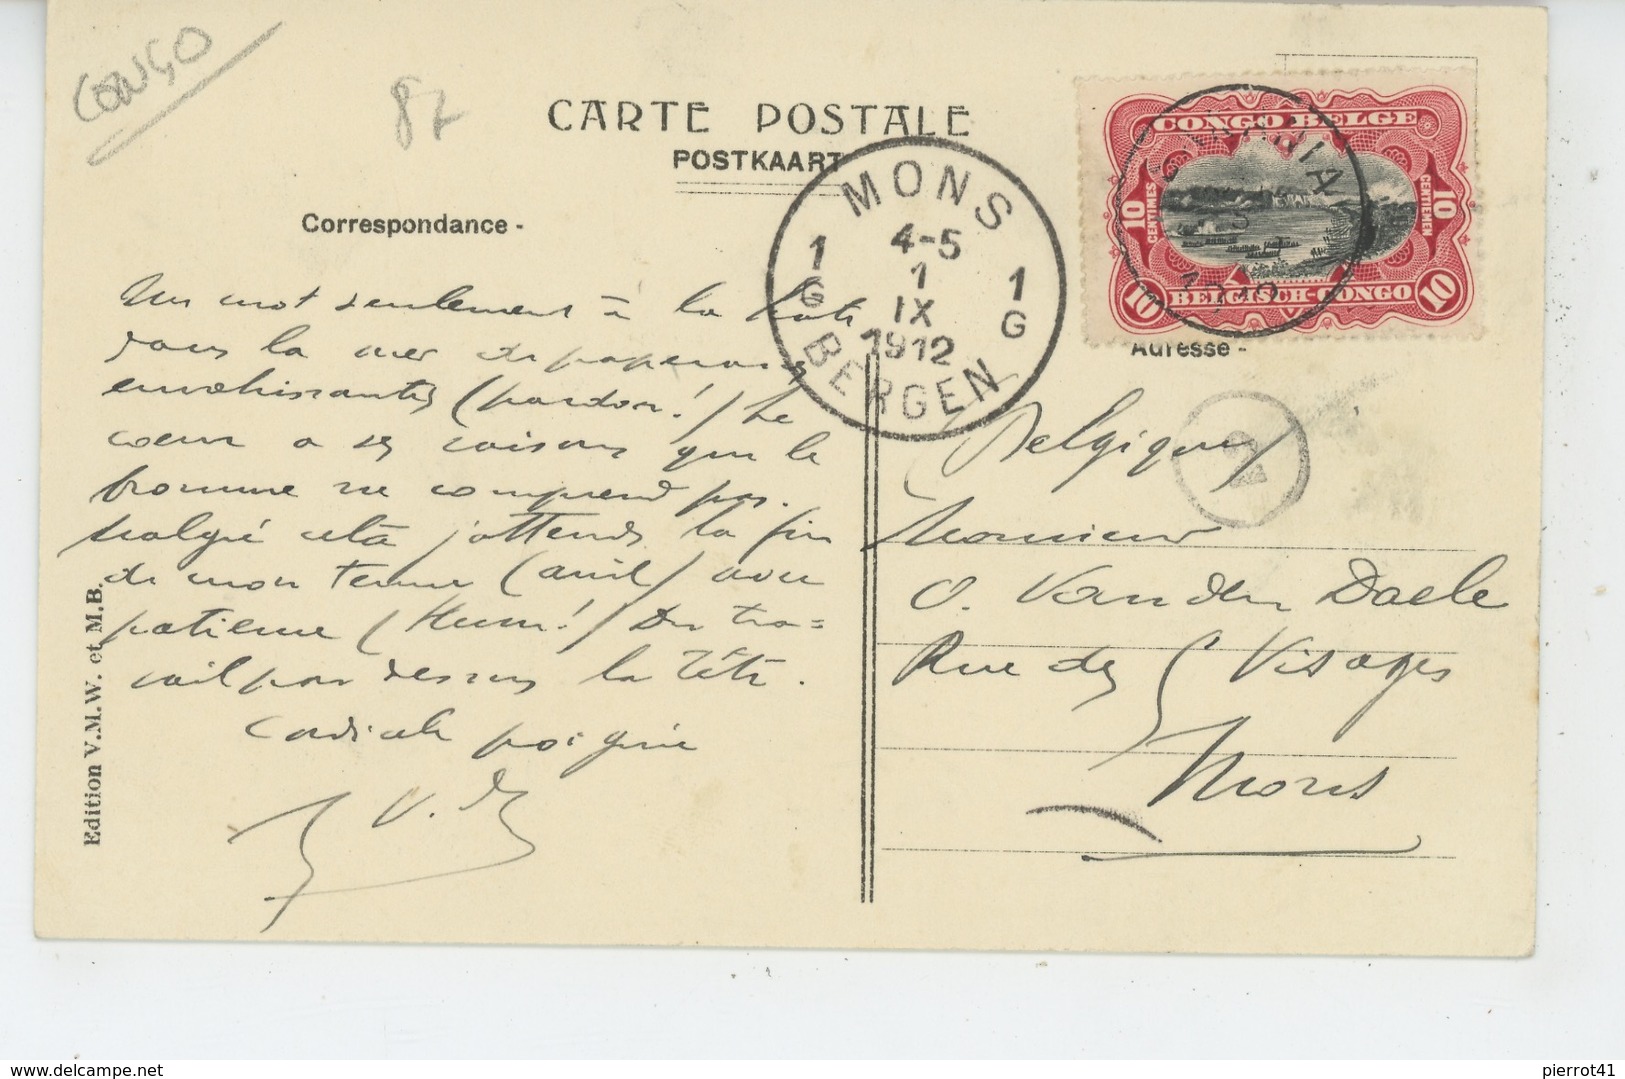 CONGO
82
CARTE POSTALE
POSTKAART
Correspondance -
MONS
4-5
1
IX
1912
1 G
1 G
BERGEN
CONGO BELGE
10 CENTIMES
10 CENTIEMEN
10 BELGISCH-CONGO 10
Adresse -
Un mot seulement à la hate
dans la mer de paperasses
envahissantes (pardon!) Le
cœur a ses raisons que le
ne comprend pas.
Malgré cela j'attends la fin
de mon terme (avril) avec
patience (Hum!) Du tra=
vail par dessus la tête.
Cordiale poignée
Belgique
Monsieur
O. Van den Daele
Rue des 5 Visages
Mons
Edition V.M.W. et M.B.
delcampe.net
pierrot41